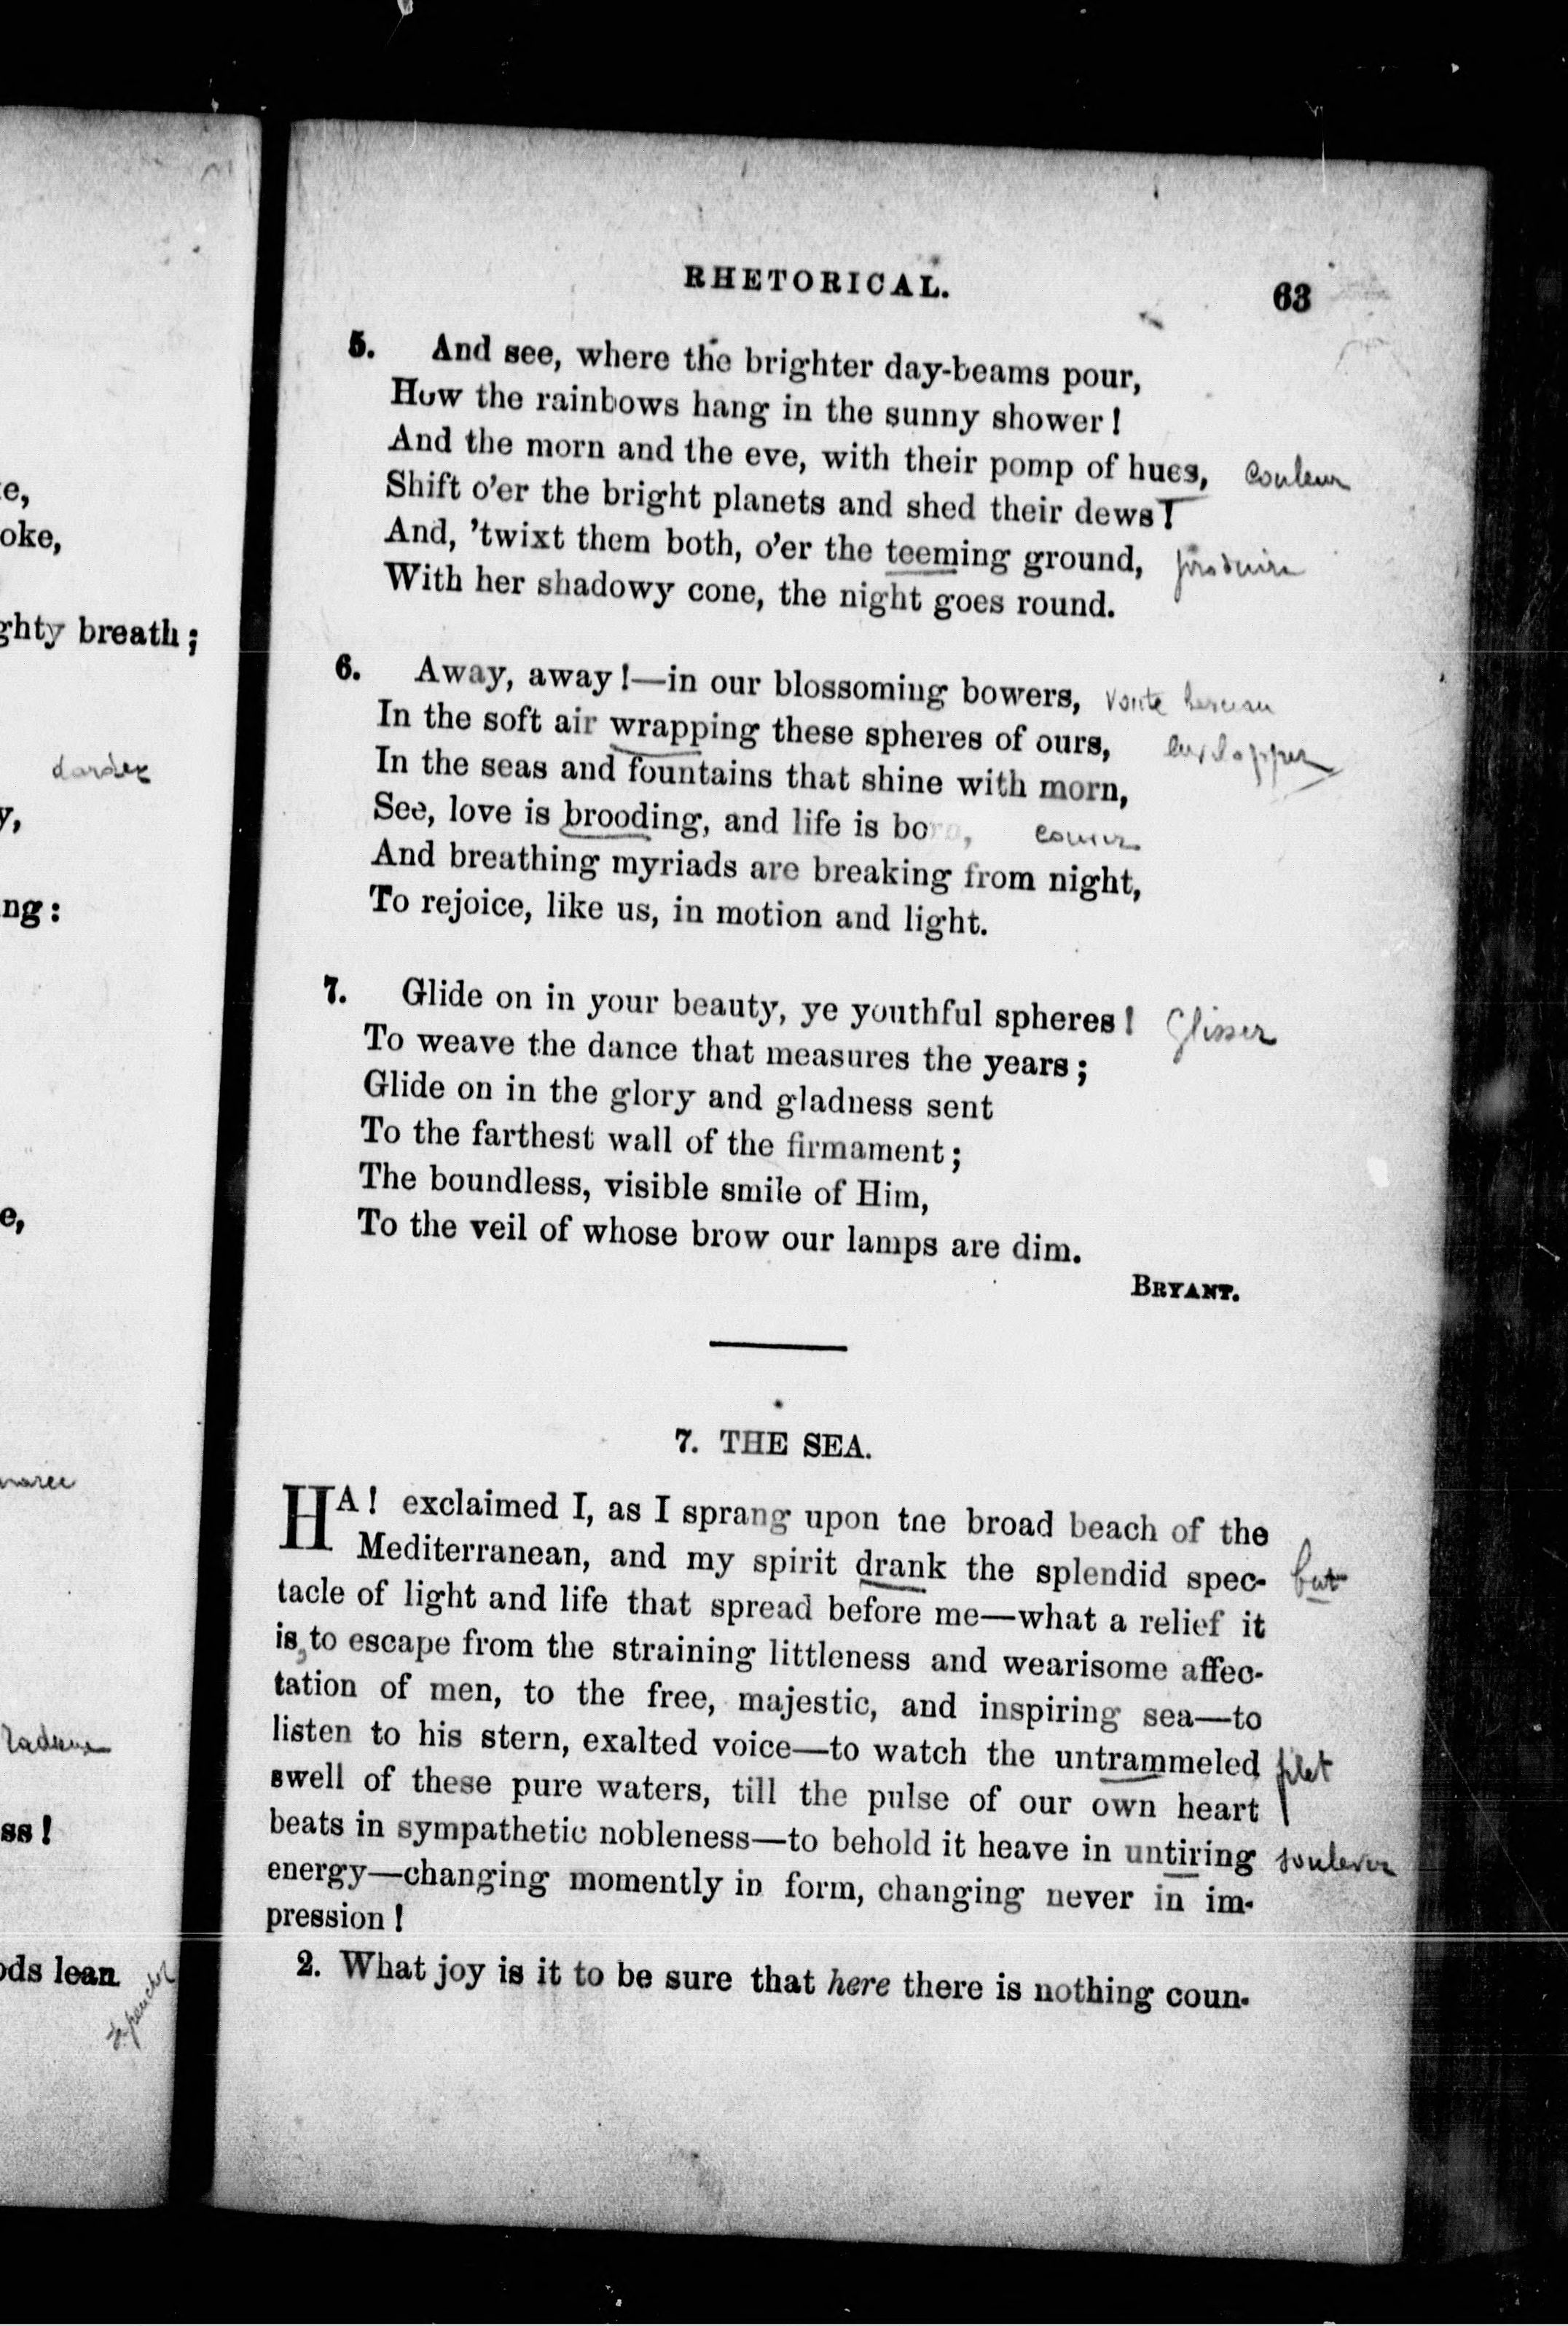 e,
oke,
ghty breath;
y,
ng:
e,
ss!
ods lean
RHETORICAL. 63
5. And see, where the brighter day-beams pour,
How the rainbows hang in the sunny shower!
And the morn and the eve, with their pomp of hues, couleur
Shift o'er the bright planets and shed their dews!
And, 'twixt them both, o'er the teeming ground, produire
With her shadowy cone, the night goes round.
6. Away, away!—in our blossoming bowers, voute berceau
In the soft air wrapping these spheres of ours, envelopper
In the seas and fountains that shine with morn,
See, love is brooding, and life is born, couver
And breathing myriads are breaking from night,
To rejoice, like us, in motion and light.
7. Glide on in your beauty, ye youthful spheres! Glisser
To weave the dance that measures the years;
Glide on in the glory and gladness sent
To the farthest wall of the firmament;
The boundless, visible smile of Him,
To the veil of whose brow our lamps are dim.
BRYANT.
7. THE SEA.
HA! exclaimed I, as I sprang upon the broad beach of the
Mediterranean, and my spirit drank the splendid spec- but
tacle of light and life that spread before me—what a relief it
is, to escape from the straining littleness and wearisome affec-
tation of men, to the free, majestic, and inspiring sea—to
listen to his stern, exalted voice—to watch the untrammeled filet
swell of these pure waters, till the pulse of our own heart
beats in sympathetic nobleness—to behold it heave in untiring soulever
energy—changing momently in form, changing never in im-
pression!
2. What joy is it to be sure that here there is nothing coun-